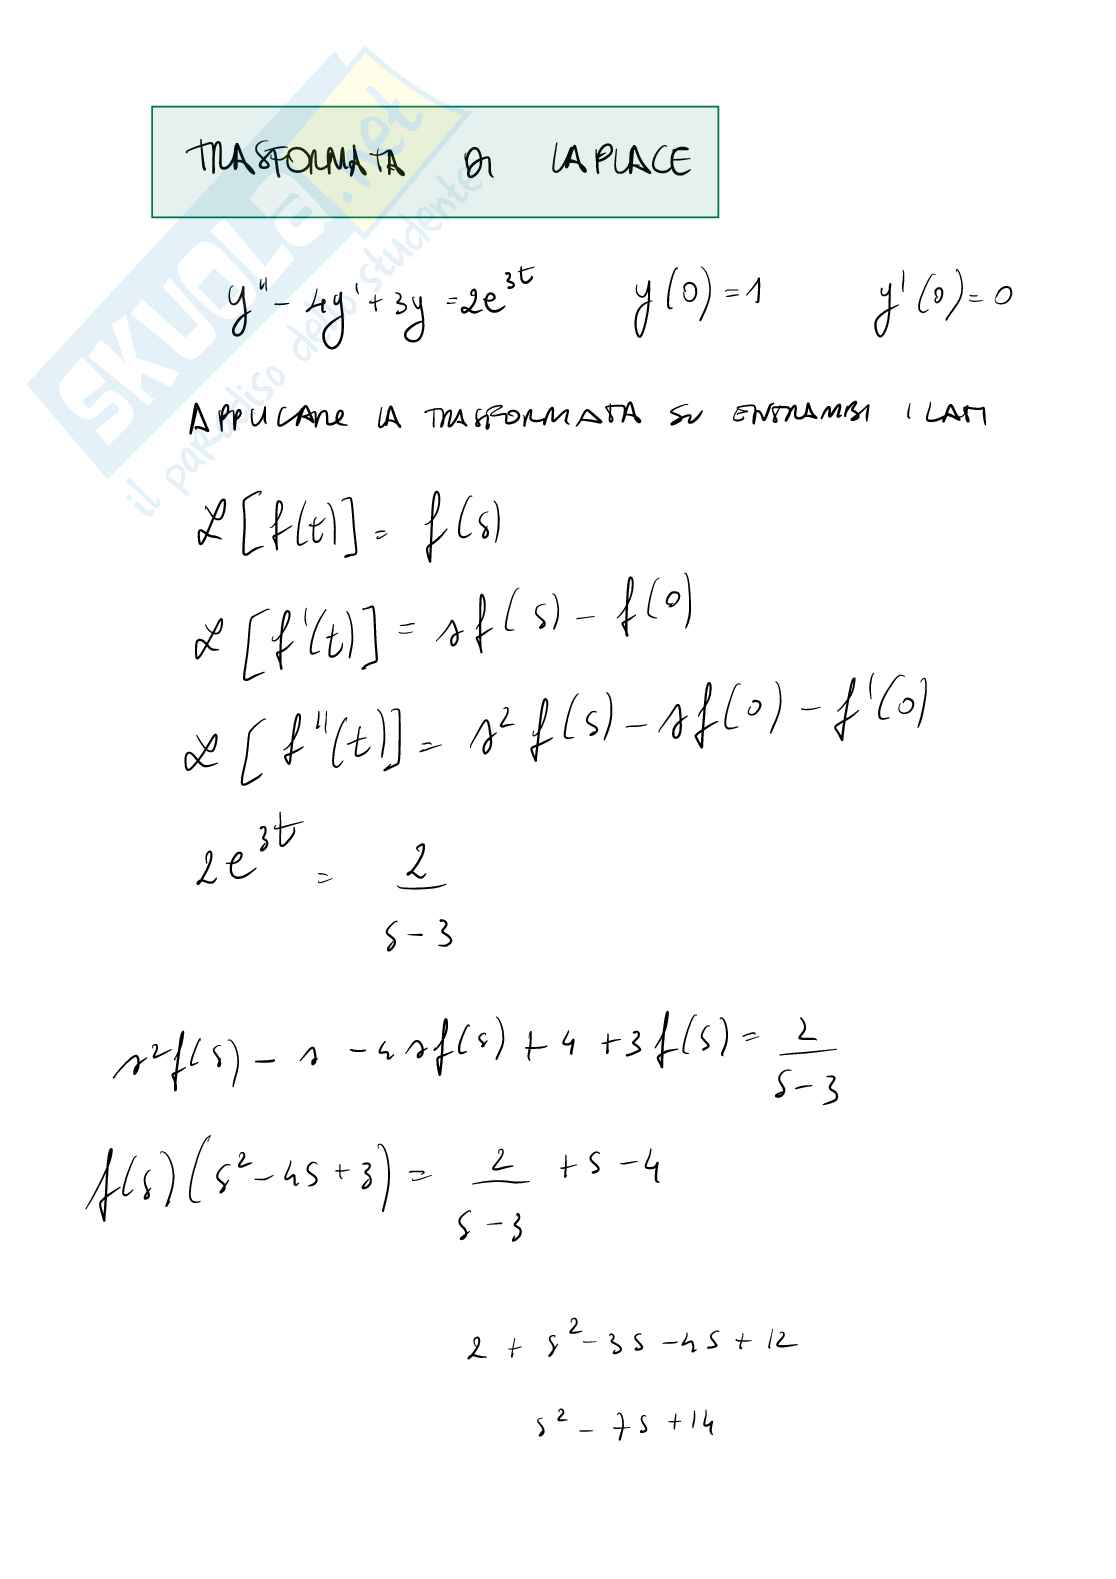 TRASFORMATA DI LAPLACE
y'' - 4y' + 3y = 2e^{3t} y(0) = 1 y'(0) = 0
APPLICARE LA TRASFORMATA SU ENTRAMBI I LATI
ℒ[f(t)] = f(s)
ℒ[f'(t)] = sf(s) - f(0)
ℒ[f''(t)] = s² f(s) - sf(0) - f'(0)
2e^{3t} = 2/(s-3)
s²f(s) - s - 4sf(s) + 4 + 3f(s) = 2/(s-3)
f(s)(s² - 4s + 3) = 2/(s-3) + s - 4
2 + s² - 3s - 4s + 12
s² - 7s + 14
SKUOLA.net
il paradiso dello studente